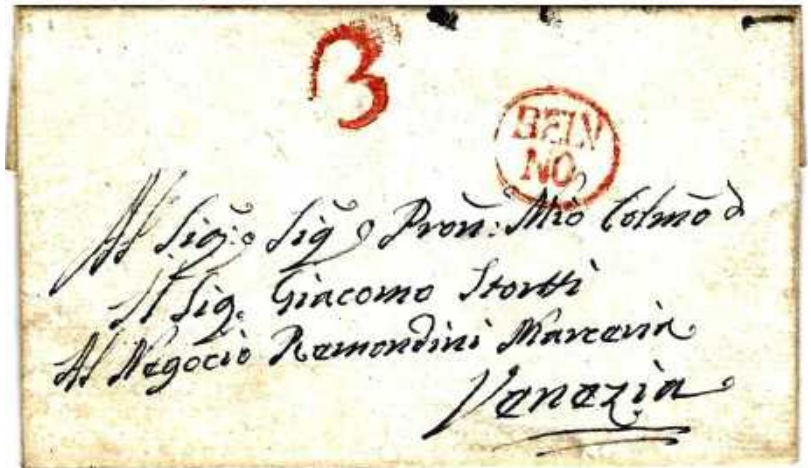 3
BELU
NO
Al Sig:r Sig:r Pron: Mio Colmo
Il Sig. Giacomo Storti
Al Negocio Remondini Marceria
Venezia